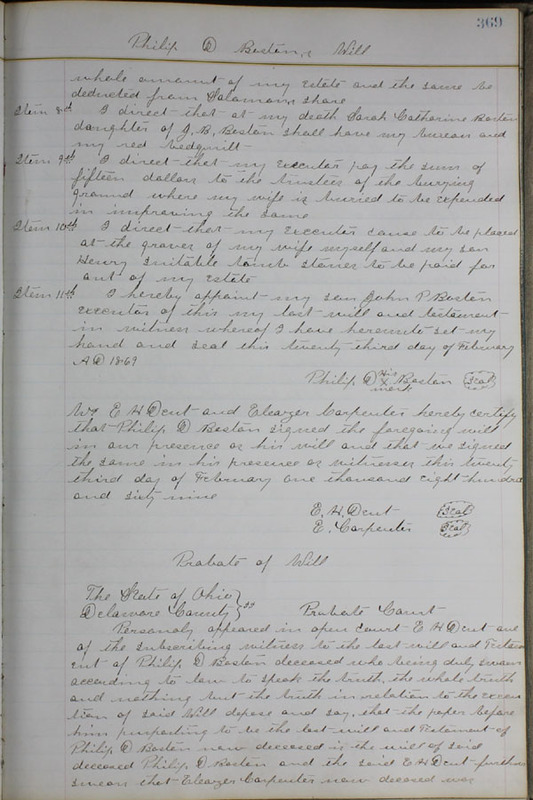 369
Philip D Boston's Will
whole amount of my Estate and the same be
deducted from Salamons share
Item 8th I direct that at my death Sarah Catharine Boston
daughter of J. B. Boston shall have my bureau and
my red bedquilt
Item 9th I direct that my Executor pay the sum of
fifteen dollars to the trustees of the burying
ground where my wife is burried to be expended
in improving the same
Item 10th I direct that my Executor cause to be placed
at the graves of my wife myself and my son
Henry suitable tomb stones to be paid for
out of my Estate
Item 11th I hereby appoint my son John P Boston
Executor of this my last will and testament
in witness whereof I have hereunto set my
hand and seal this twenty third day of February
A D 1869
Philip D his X mark Boston Seal
We E H Dent and Eleazer Carpenter hereby certify
that Philip D Boston signed the foregoing will
in our presence as his will and that we signed
the same in his presence as witnesses this twenty
third day of February one thousand eight hundred
and sixty nine
E. H. Dent Seal
E. Carpenter Seal
Probate of Will
The State of Ohio }
Delaware County } ss Probate Court
Personaly appeared in open court E H Dent one
of the subscribing witness to the last will and Testam
ent of Philip D Boston deceased who being duly sworn
according to law to speak the truth, the whole truth
and nothing but the truth in relation to the execu
tion of said Will depose and say, that the paper before
him purporting to be the last will and Testament of
Philip D Boston now deceased is the will of said
deceased Philip D Boston and the said E H Dent further
swears that Eleazer Carpenter now deceased was